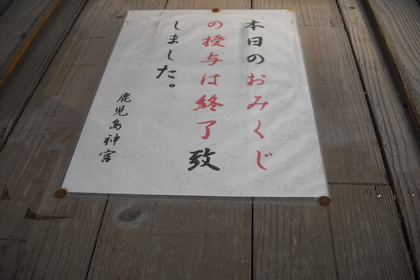 本日のおみくじ
の授与は終了致
しました。
鹿児島神宮